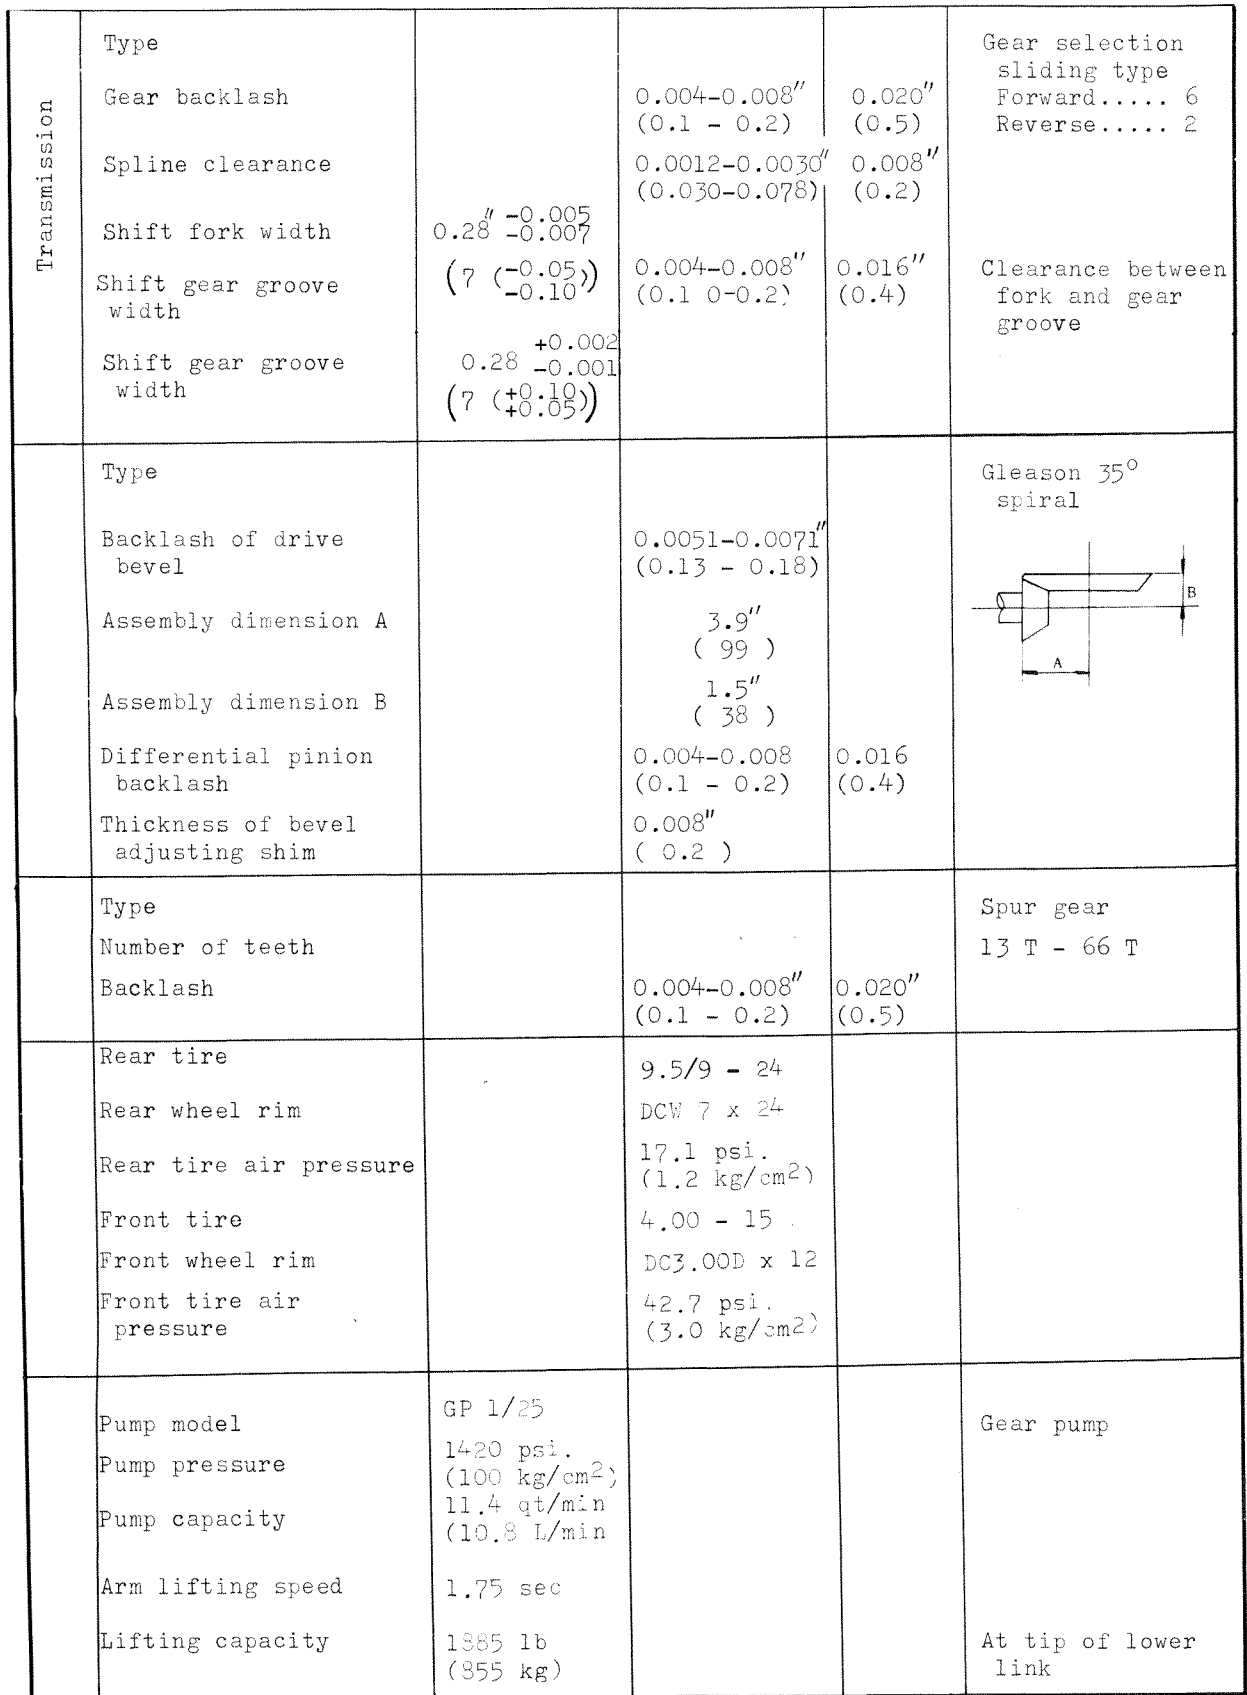 Transmission
Type
Gear selection
sliding type
Forward..... 6
Reverse..... 2
Gear backlash 0.004-0.008" 0.020"
(0.1 - 0.2) (0.5)
Spline clearance 0.0012-0.0030" 0.008"
(0.030-0.078) (0.2)
Shift fork width 0.28" -0.005
-0.007
Shift gear groove
width
(7 (-0.05))
-0.10
0.004-0.008" 0.016"
(0.1 0-0.2) (0.4)
Clearance between
fork and gear
groove
Shift gear groove
width
+0.002
0.28 -0.001
(7 (+0.10))
+0.05
Type
Gleason 35°
spiral
Backlash of drive
bevel
0.0051-0.0071"
(0.13 - 0.18)
B
A
Assembly dimension A 3.9"
( 99 )
Assembly dimension B 1.5"
( 38 )
Differential pinion
backlash
0.004-0.008 0.016
(0.1 - 0.2) (0.4)
Thickness of bevel
adjusting shim
0.008"
( 0.2 )
Type Spur gear
Number of teeth 13 T - 66 T
Backlash 0.004-0.008" 0.020"
(0.1 - 0.2) (0.5)
Rear tire 9.5/9 - 24
Rear wheel rim DCW 7 x 24
Rear tire air pressure 17.1 psi.
(1.2 kg/cm2)
Front tire 4.00 - 15
Front wheel rim DC3.00D x 12
Front tire air
pressure
42.7 psi.
(3.0 kg/cm2)
Pump model GP 1/25 Gear pump
Pump pressure 1420 psi.
(100 kg/cm2)
Pump capacity 11.4 qt/min
(10.8 L/min
Arm lifting speed 1.75 sec
Lifting capacity 1885 lb
(855 kg)
At tip of lower
link